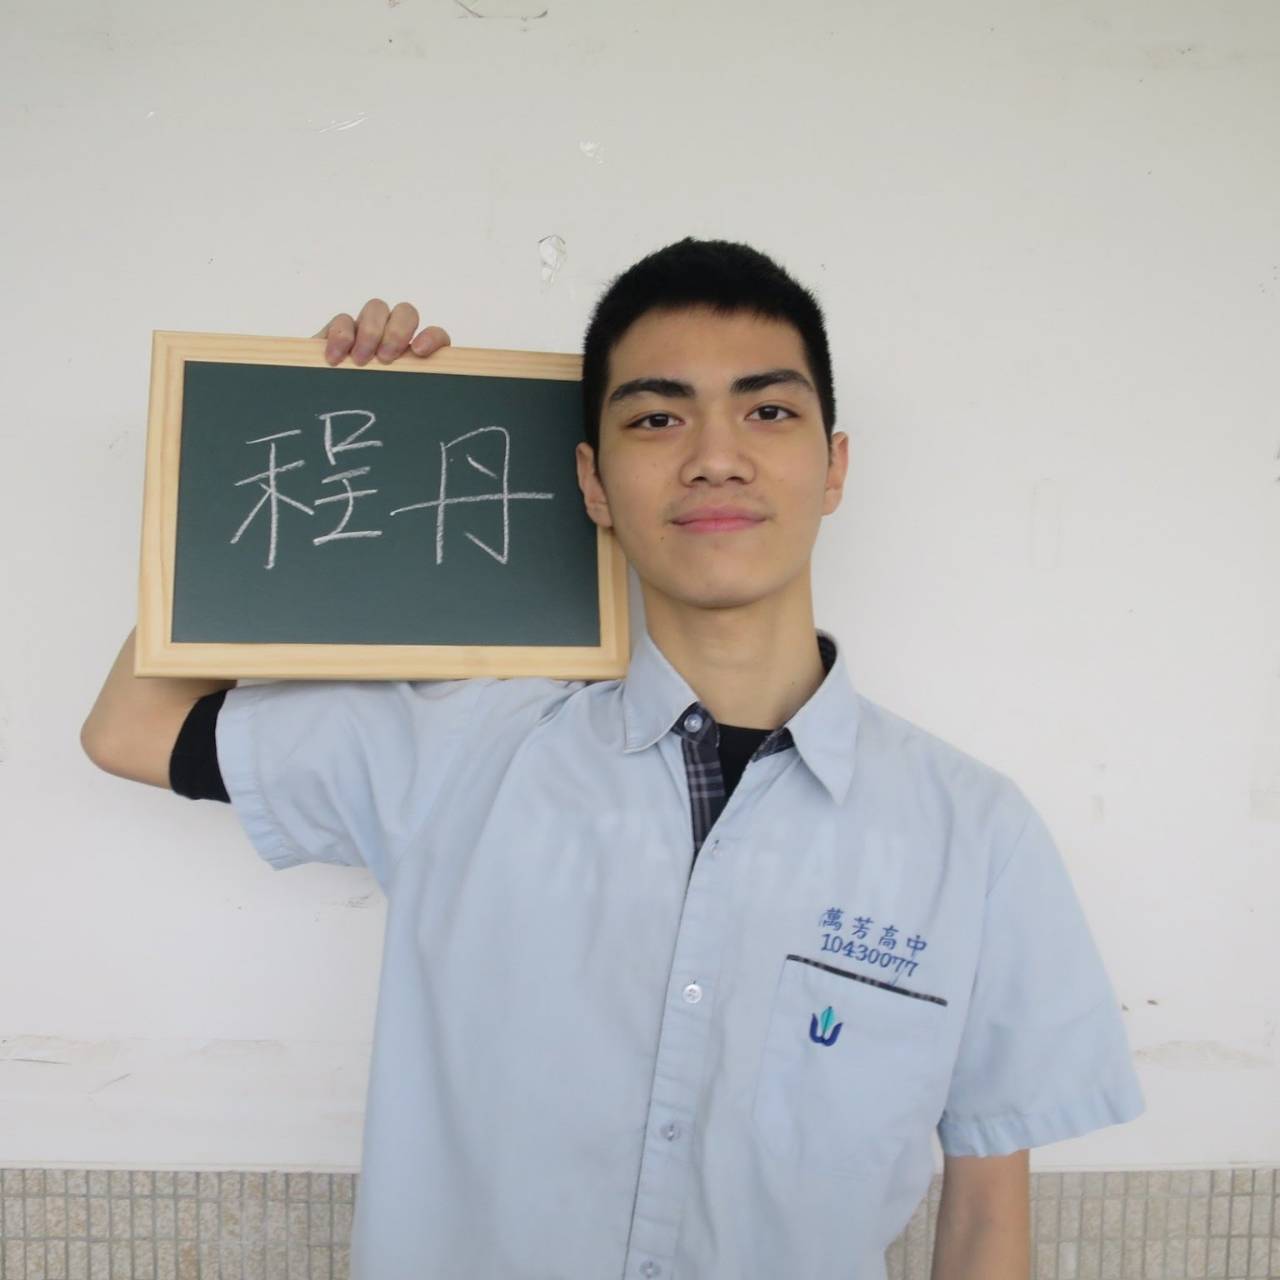 程丹
萬芳高中
10430077